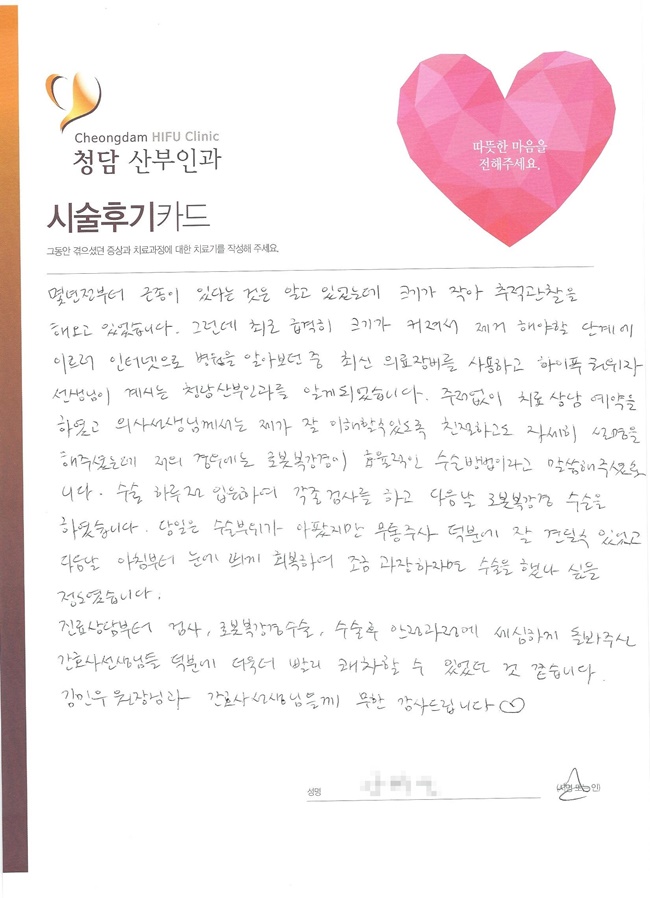 Cheongdam HIFU Clinic
청담 산부인과
따뜻한 마음을
전해주세요.
시술후기카드
그동안 겪으셨던 증상과 치료과정에 대한 치료기를 작성해 주세요.
몇년전부터 근종이 있다는 것은 알고 있었는데 크기가 작아 추적관찰을
해오고 있었습니다. 그런데 최근 급격히 크기가 커져서 제거 해야할 단계에
이르러 인터넷으로 병원을 알아보던 중 최신 의료장비를 사용하고 하이푸 권위자
선생님이 계시는 청담산부인과를 알게되었습니다. 주저없이 치료상담 예약을
하였고 의사선생님께서는 제가 잘 이해할수있도록 친절하고도 자세히 설명을
해주셨는데 저의 경우에는 로봇복강경이 효율적인 수술방법이라고 말씀해주셨습
니다. 수술 하루전 입원하여 각종검사를 하고 다음날 로봇복강경 수술을
하였습니다. 당일은 수술부위가 아팠지만 무통주사 덕분에 잘 견딜수 있었고
다음날 아침부터 눈에 띄게 회복하여 조금 과장하자면 수술을 했나 싶을
정도였습니다.
진료상담부터 검사, 로봇복강경수술, 수술후 안정과정에 세심하게 돌봐주신
간호사선생님들 덕분에 더욱더 빨리 쾌차할 수 있었던 것 같습니다.
김민우 원장님과 간호사선생님들께 무한 감사드립니다
성명 (서명 또는 인)